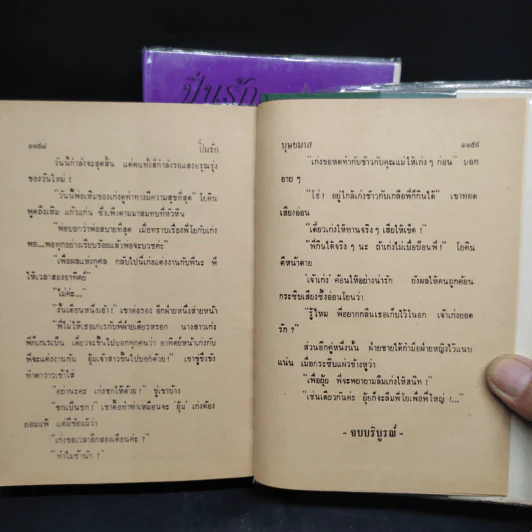 ปิ่นรัก
๑๑๕๘ ปิ่นรัก
วันนี้กำลังจะสุดสิ้น แต่คนทั้งสี่กำลังรอแสงอรุณรุ่ง
ของวันใหม่ !
"วันนี้พ่อเห็นของเก่งดูท่าทางมีความสุขที่สุด" โยคิน
พูดถึงเห็ม แก้วแก่น ซึ่งเพิ่งตามมาสมทบที่หัวหิน
"พ่อบอกว่าพอสบายที่สุด เมื่อทราบเรื่องพี่โยกับเก่ง
พอ...พอทุกอย่างเรียบร้อยแล้วพ่อจะบวชค่ะ"
"เพื่อผลแห่งกุศล กลับไปนี่เก่งแต่งงานกับพี่นะ พี่
ให้เวลาสองอาทิตย์"
"ไม่ค่ะ..."
"งั้นเดือนหนึ่งเอ้า!" เขาต่อรอง อีกฝ่ายหนึ่งส่ายหน้า
"พี่ไม่ให้เธอเกเรกับพี่ฝ่ายเดียวหรอก นางสาวเก่ง
พี่ก็เกเรเป็น เดี๋ยวจะขึ้นไปบอกทุกคนว่า อาทิตย์หน้าเก่งกับ
พี่จะแต่งงานกัน อุ้มเจ้าสาวขึ้นไปบอกด้วย!" เขาขู่ขึงขัง
ทำตาวาวเข้าใส่
"อย่านะคะ เก่งชกให้ด้วย!" ขู่เขาบ้าง
"ชกเป็นชก!" เขาดื้อทำท่าเหมือนจะ อุ้ม เก่งต้อง
ยอมแพ้ แต่มีข้อแม้ว่า
"เก่งขอเวลาอีกสองเดือนค่ะ ?"
"ทำไมช้านัก ?"
บุษยมาส ๑๑๕๙
"เก่งขอหัดทำกับข้าวกับคุณแม่ให้เก่ง ๆ ก่อน" บอก
อาย ๆ
"โธ่! อยู่ใกล้เก่งข้าวกับเกลือพี่ก็กินได้" เขาทอด
เสียงอ่อน
"เดี๋ยวเก่งให้ทานจริง ๆ เสียให้เข็ด !"
"พี่กินได้จริง ๆ นะ ถ้าเก่งไม่เบื่อป้อนพี่ !" โยคิน
ตีหน้าตาย
'เจ้าเก่ง' ค้อนให้อย่างน่ารัก ยังผลให้คนถูกค้อน
กระซิบเสียงซึ้งอ่อนโยนว่า
"รู้ไหม พี่อยากกลืนเธอเก็บไว้ในอก เจ้าเก่งยอด
รัก ?"
ส่วนอีกคู่หนึ่งนั้น ฝ่ายชายได้กำมือฝ่ายหญิงไว้แนบ
แน่น เมื่อกระซิบแผ่วข้างหูว่า
"เพื่อยุ้ย พี่จะพยายามลืมเก่งให้สนิท !"
"เช่นเดียวกันค่ะ ยุ้ยก็จะลืมพี่โยเพื่อพี่ใหญ่ !..."
- จบบริบูรณ์ -